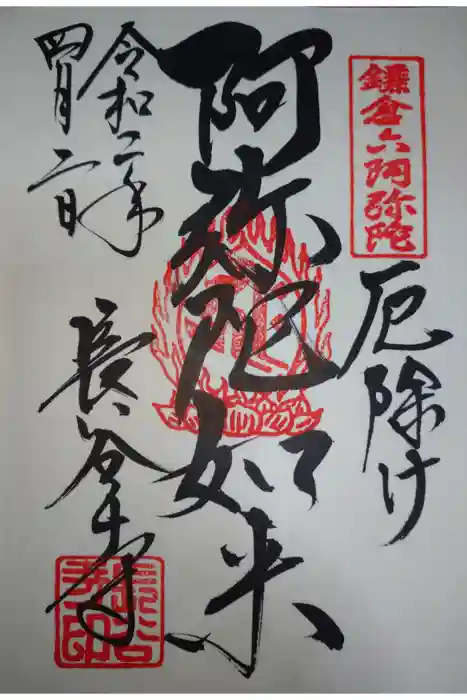 鎌倉六阿弥陀
厄除け
阿弥陀如来
令和二年
四月二日
長谷寺
長谷寺印